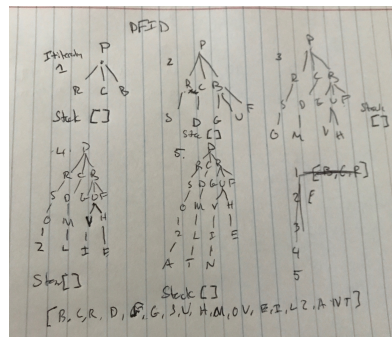 DFID
Iteration
1
P
R C B
Stack []
2
P
R C B
S D G U F
Stack []
3
P
R C B
S D G U F
O M V H
Stack []
4.
R C B
S D G U F
O M V H
1
2 L I E
Stack []
5.
R C B
S D G U F
O M V H
1
2 L I E
A T N
Stack []
1 [B, C, R]
2 [
3
4
5
[B, C, R, D, F, G, S, U, H, M, O V, E, I, L 2, A N T]